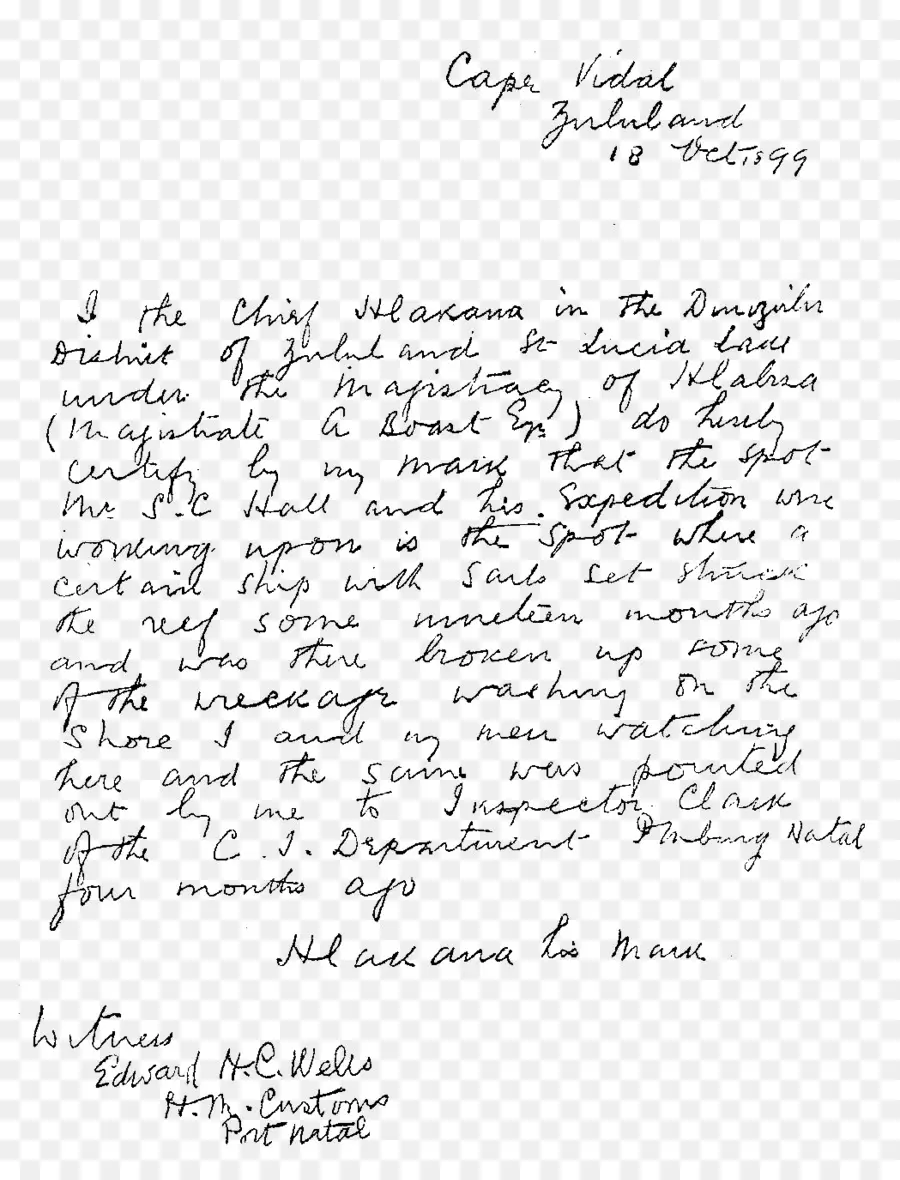 Cape Vidal
Zululand
18 Oct, 1899
I the Chief Hlakana in the
District of Zululand St Lucia Lake
under the Magistracy of Hlabisa
(Magistrate A Boast Esq.) do hereby
certify by my mark that the spot
Mr S.C Hall and his Expedition were
working upon is the spot where a
certain ship with sails set struck
the reef some nineteen months ago
and was there broken up some
of the wreckage washing on the
Shore I and my men watching
here and the same was pointed
out by me to Inspector Clark
of the C. I. Department PMburg Natal
four months ago
Hlakana his Mark
Witness
Edward H.C. Wells
H.M. Customs
Port Natal